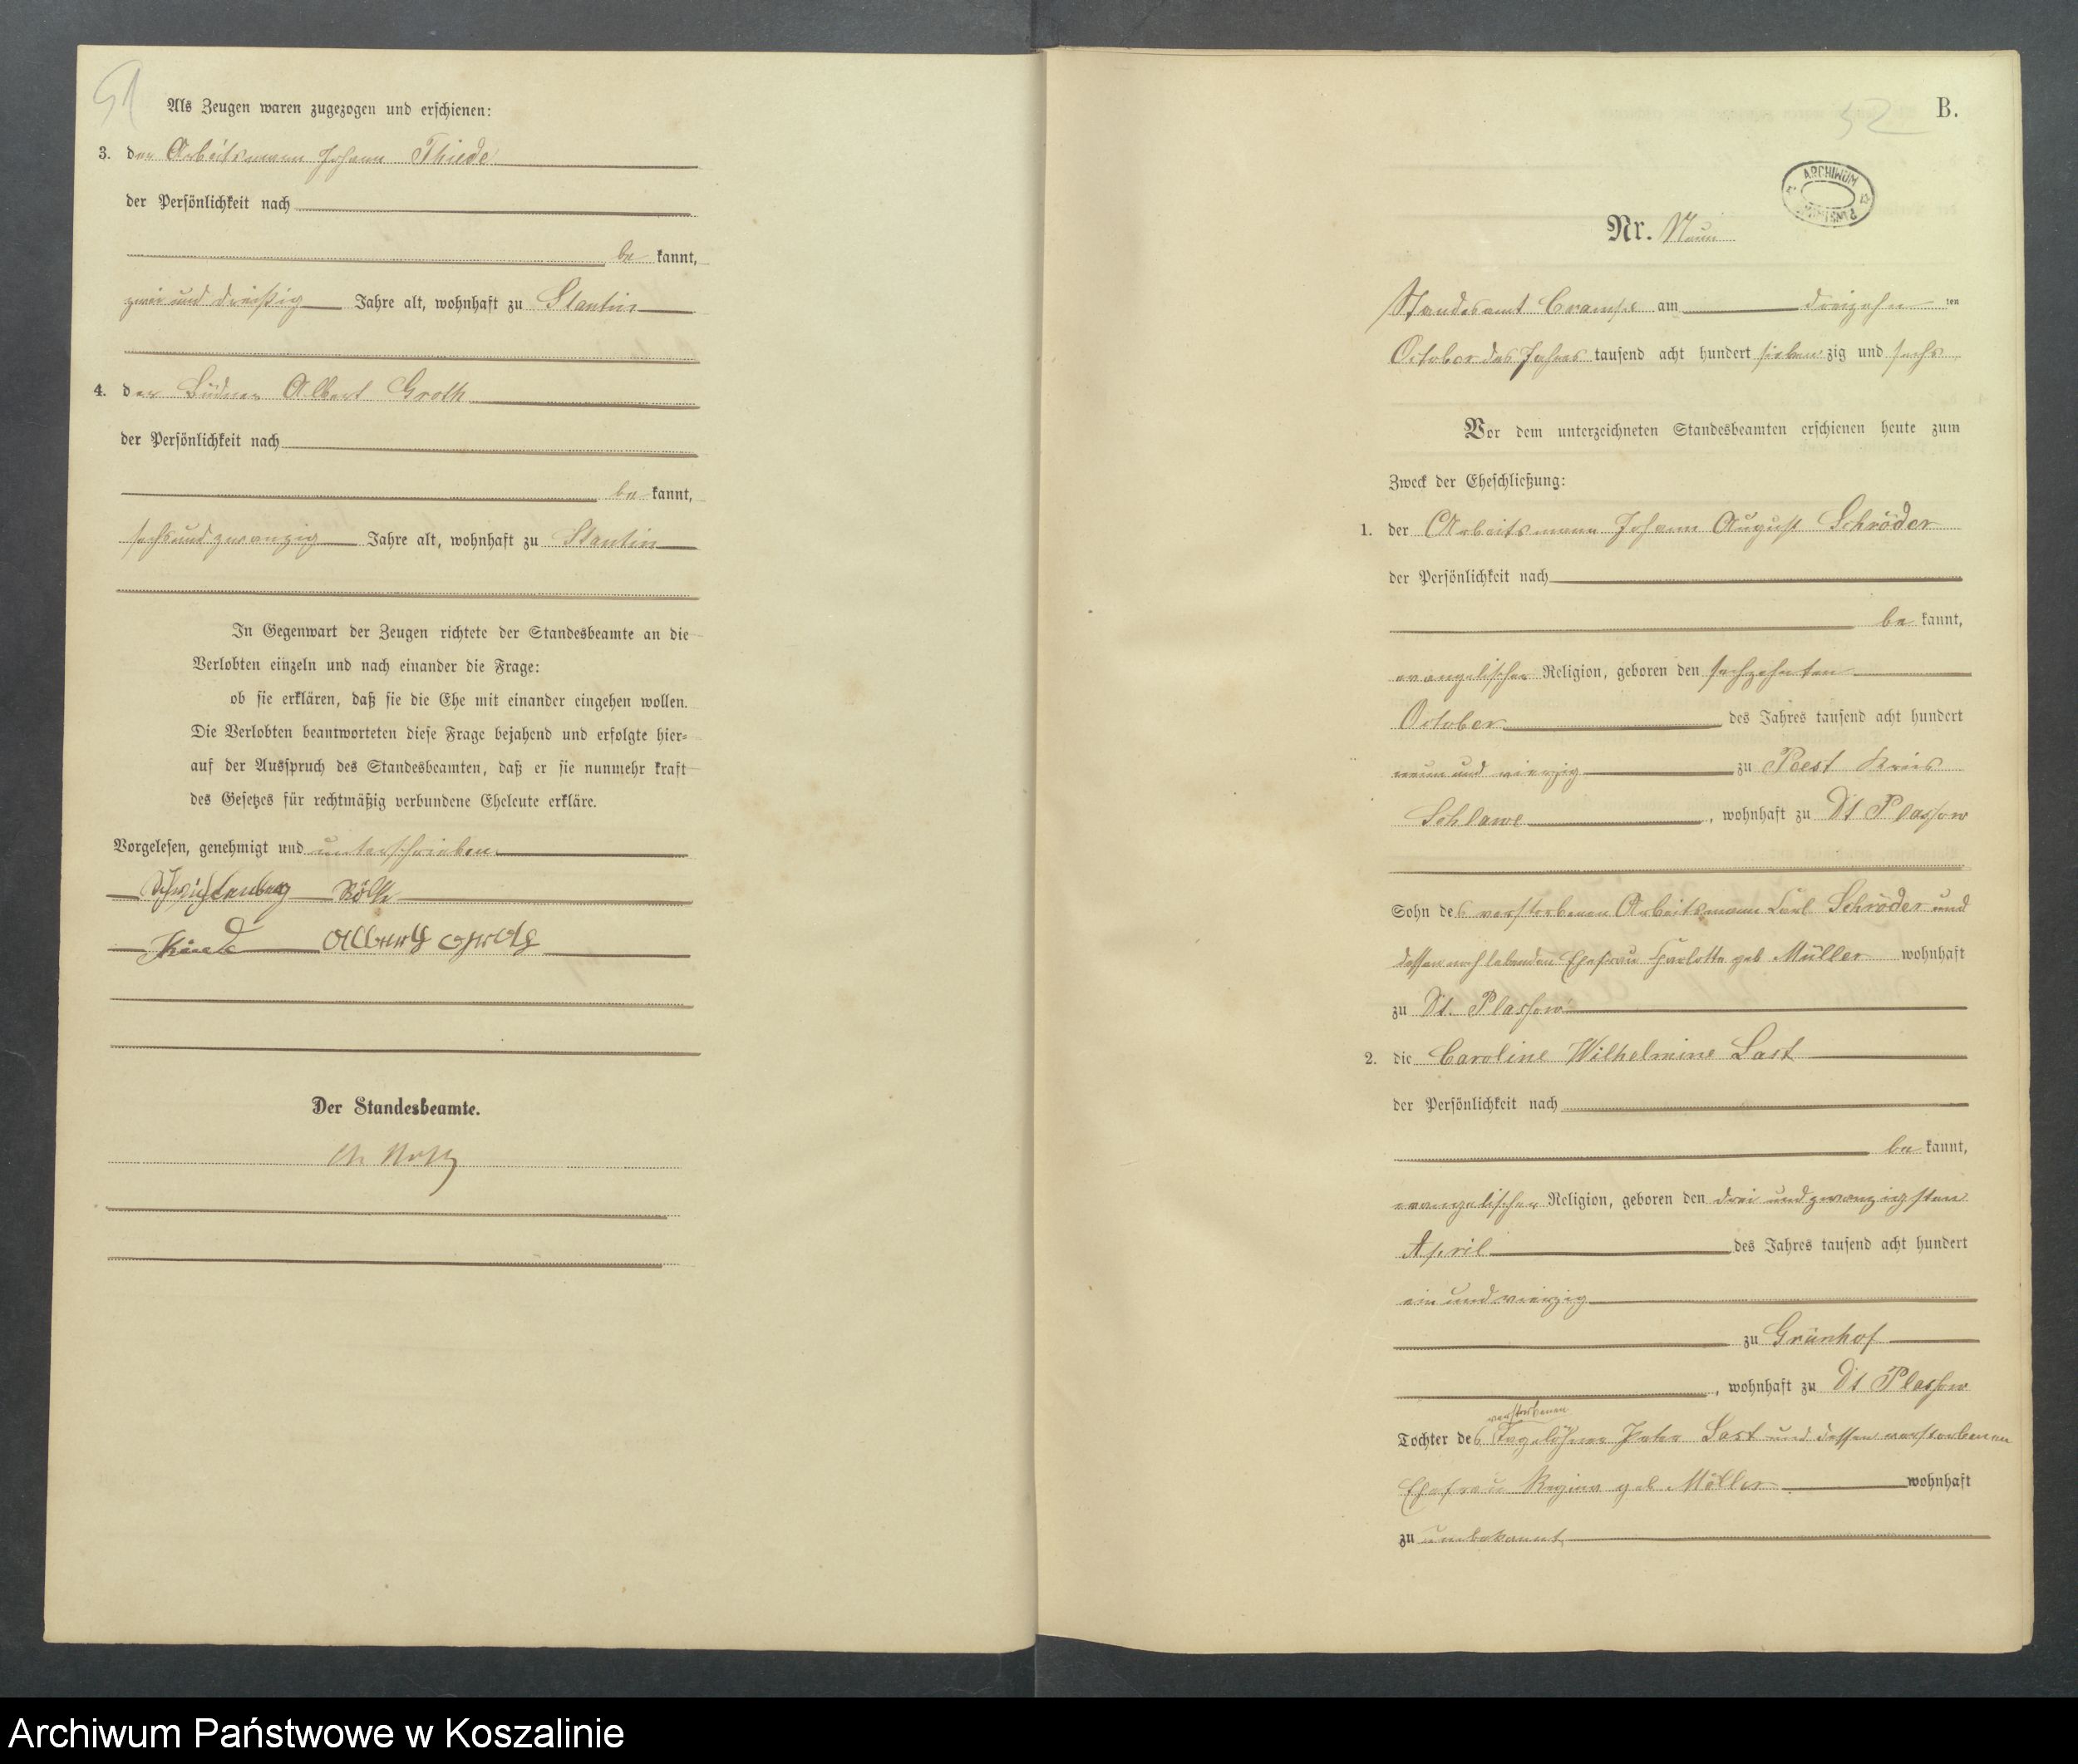 51
Als Zeugen waren zugezogen und erschienen:
3. der Arbeitsmann Johann Thiede
der Persönlichkeit nach
be kannt,
zwei und dreißig Jahre alt, wohnhaft zu Stantin
4. der Büdner Albert Groth
der Persönlichkeit nach
be kannt,
sechsundzwanzig Jahre alt, wohnhaft zu Stantin
In Gegenwart der Zeugen richtete der Standesbeamte an die
Verlobten einzeln und nach einander die Frage:
ob sie erklären, daß sie die Ehe mit einander eingehen wollen.
Die Verlobten beantworteten diese Frage bejahend und erfolgte hier=
auf der Ausspruch des Standesbeamten, daß er sie nunmehr kraft
des Gesetzes für rechtmäßig verbundene Eheleute erkläre.
Vorgelesen, genehmigt und unterschrieben
Albert Groth
Der Standesbeamte.
52 B.
ARCHIWUM
Nr. Neun
Standesamt Crampe am dreizehn ten
October des Jahres tausend acht hundert sieben zig und sechs
Vor dem unterzeichneten Standesbeamten erschienen heute zum
Zweck der Eheschließung:
1. der Arbeitsmann Johann August Schröder
der Persönlichkeit nach
be kannt,
evangelischer Religion, geboren den sechzehnten
October des Jahres tausend acht hundert
neun und vierzig zu Peest Kreis
Schlawe, wohnhaft zu Dt Plassow
Sohn des verstorbenen Arbeitsmann Carl Schröder und
dessen noch lebenden Ehefrau Charlotte geb Müller wohnhaft
zu Dt. Plassow
2. die Caroline Wilhelmine Last
der Persönlichkeit nach
be kannt,
evangelischer Religion, geboren den drei und zwanzigsten
April des Jahres tausend acht hundert
ein und vierzig
zu Grünhof
, wohnhaft zu Dt Plassow
verstorbenen
Tochter des Tagelöhner Peter Last und dessen verstorbenen
Ehefrau Regine geb Möller wohnhaft
zu unbekannt
Archiwum Państwowe w Koszalinie